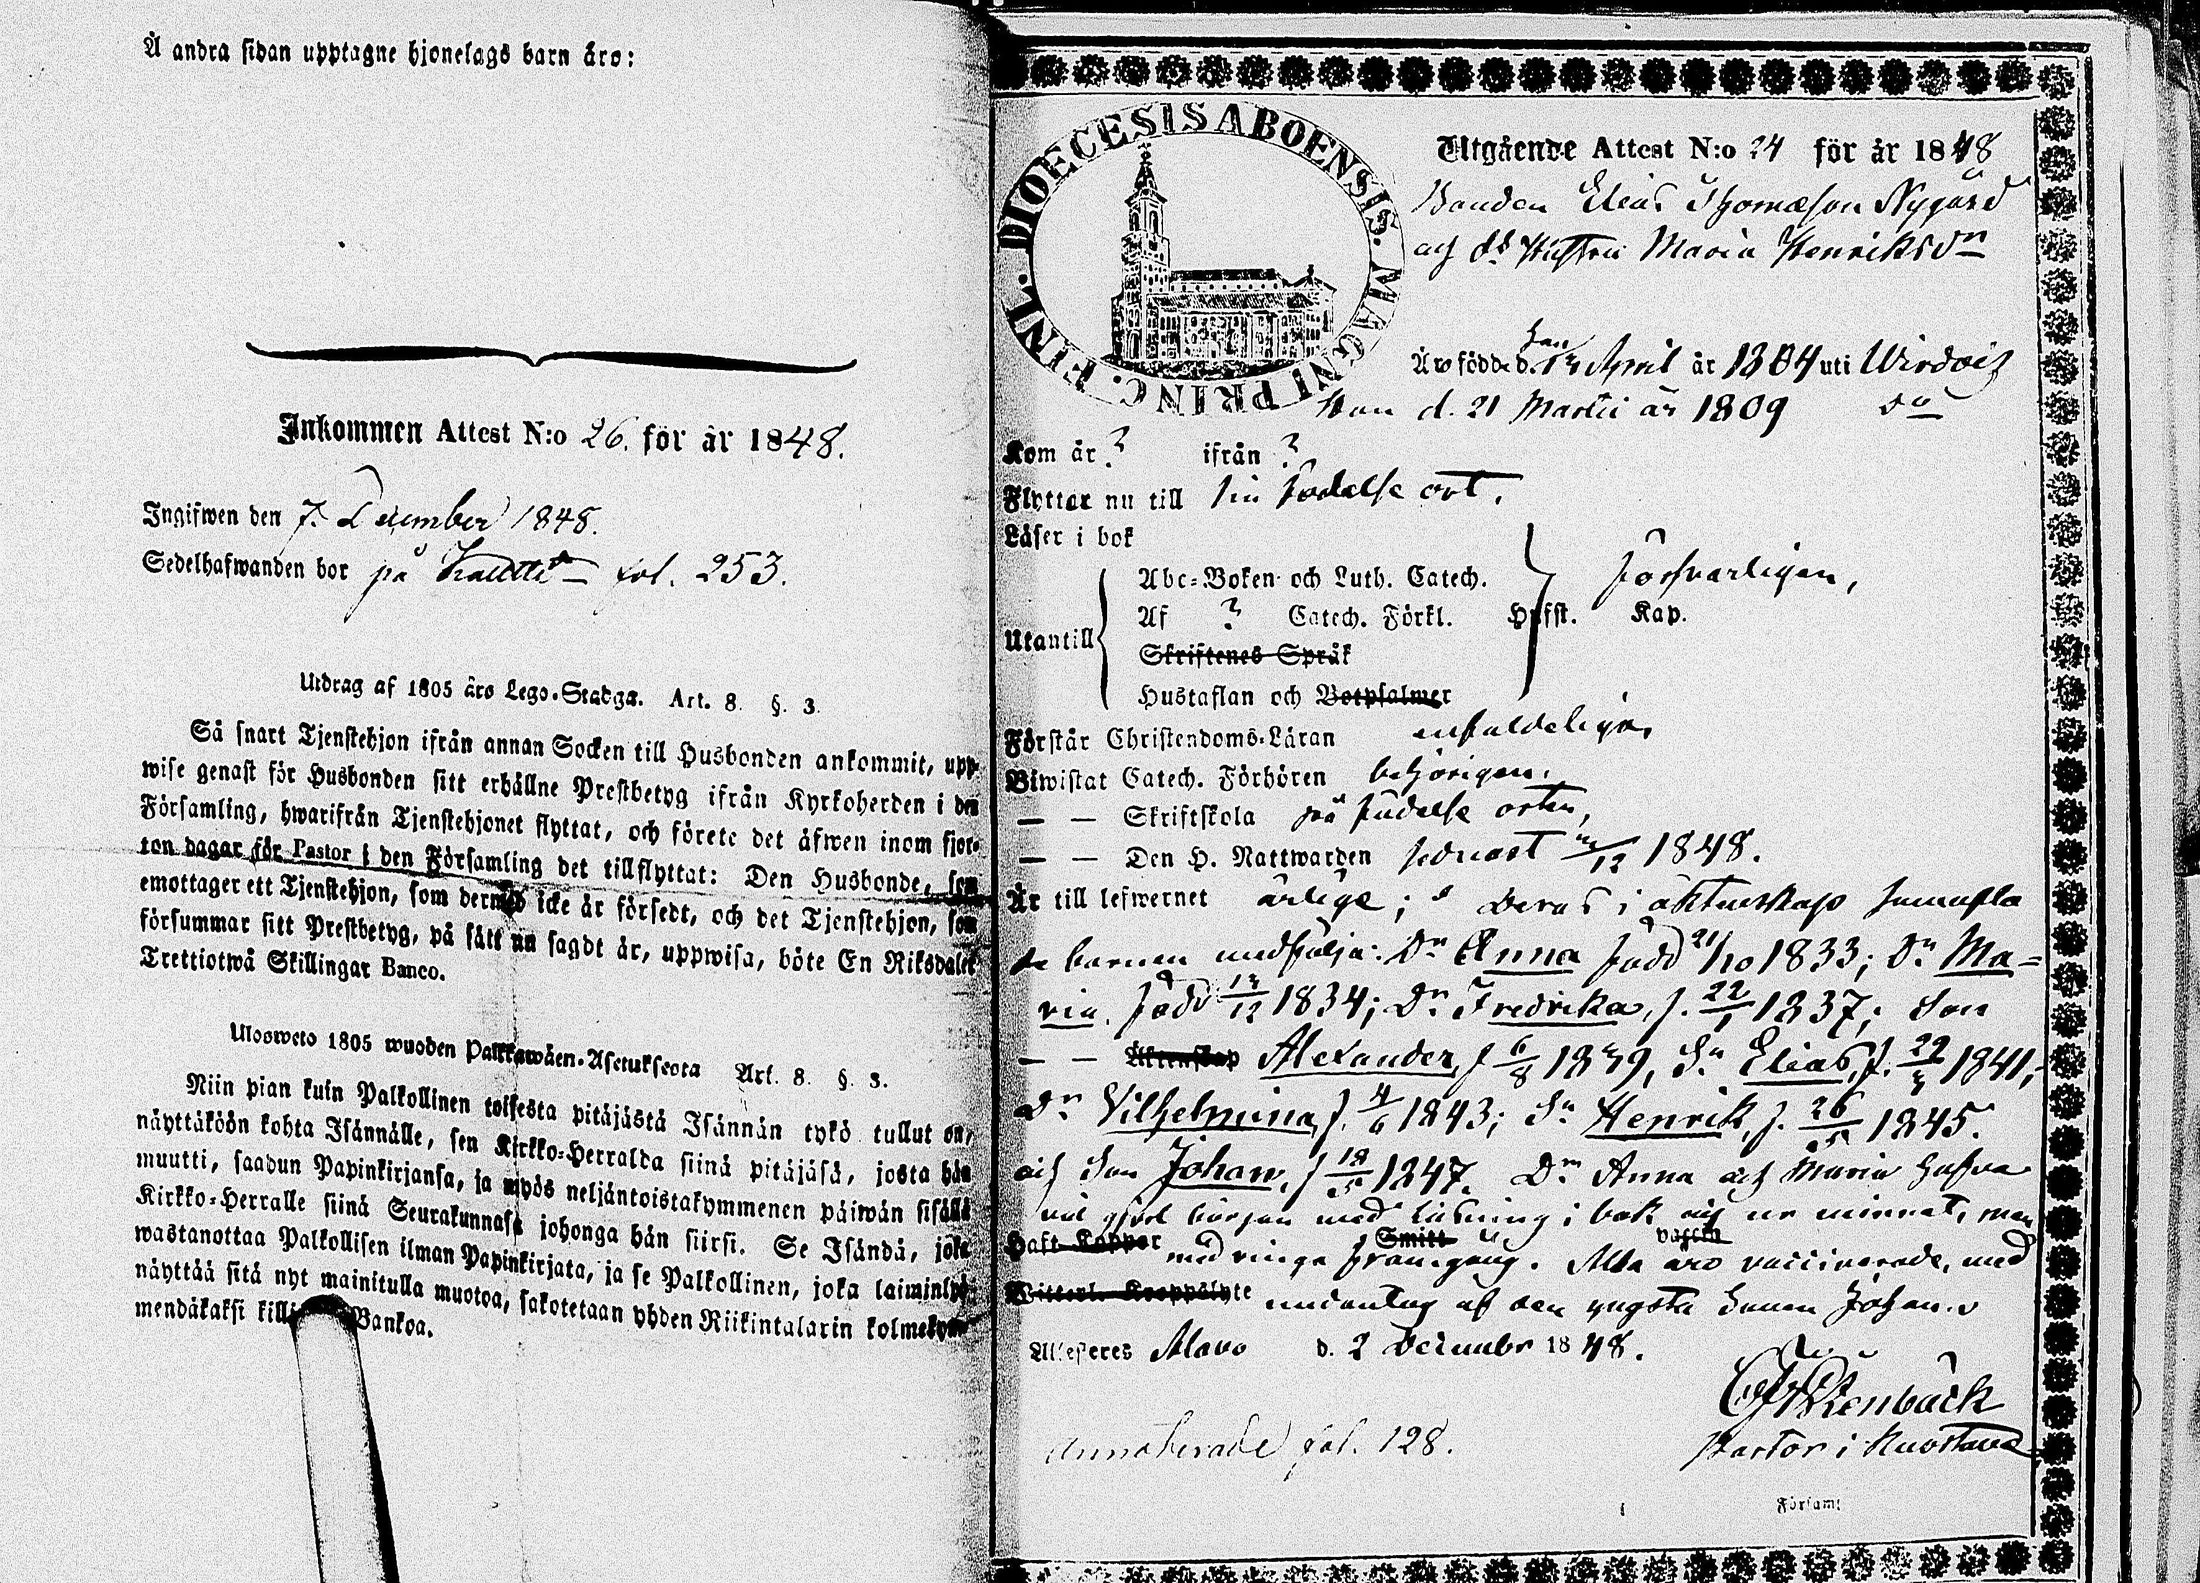 Å andra sidan upptagne hjonelags barn äro:
Inkommen Attest N:o 26. för år 1848.
Ingifwen den 7. December 1848.
Sedelhafwanden bor på fol. 253.
Utdrag af 1805 års Lego-Stadga. Art. 8. §. 3.
Så snart Tjenstehjon ifrån annan Socken till Husbonden ankommit, upp-
wise genast för Husbonden sitt erhållne Prestbetyg ifrån Kyrkoherden i den
Församling, hwarifrån Tjenstehjonet flyttat, och förete det äfwen inom fjor-
ton dagar för Pastor i den Församling det tillflyttat: Den Husbonde, som
emottager ett Tjenstehjon, som dermed icke är försedt, och det Tjenstehjon, som
försummar sitt Prestbetyg, på sätt nu sagdt är, uppwisa, böte En Riksdaler
Trettiotwå Skillingar Banco.
Ulosweto 1805 wuoden Palkkawäen-Asetuksesta Art. 8. §. 3.
Niin pian kuin Palkollinen toisesta pitäjästä Isännän tykö tullut on,
näyttäköön kohta Isännälle, sen Kirkko-Herralda siinä pitäjäsä, josta hän
muutti, saadun Papinkirjansa, ja myös neljäntoistakymmenen päiwän sisällä
Kirkko-Herralle siinä Seurakunnasa johonga hän siirsi. Se Isändä, joka
wastanottaa Palkollisen ilman Papinkirjata, ja se Palkollinen, joka laiminlyö
näyttää sitä nyt mainitulla muotoa, sakotetaan yhden Riikintalarin kolmekym-
mendäkaksi Bankoa.
DIOECESIS ABOENSIS. MAGNI PRINC. FINL.
Utgående Attest N:o 24 för år 1848
Bonden Elias Thomasson Nygård
och ds Hustru Maria Henriksdn
Äro födde d. han April år 1804 uti Wirdois
Hon d. 21 Martii år 1809 do
Kom år ? ifrån ?
Flyttar nu till sin födelse ort.
Läser i bok
Abc-Boken och Luth. Catech. försvarligen,
Af ? Catech. Förkl. Hufst. Kap.
Utantill
Skriftenes Språk
Hustaflan och Botpsalmer
Förstår Christendoms-Läran enfaldeliga,
Biwistat Catech. Förhören behörigen,
— — Skriftskola på födelse orten,
— — Den H. Nattwarden senast /12 1848.
Är till lefwernet ärlige; Deras i äktenskap sammafla
de barnen medfölja: Dn Anna född 21/10 1833; Dn Ma-
ria, född 13/12 1834; Dn Fredrika, f. 22/1 1837; Son
— — Äktenskap Alexander, f 6/8 1839, Sn Elias, f. 22/3 1841,
Dn Vilhelmina, f. 4/6 1843; Sn Henrik, f. 26/5 1845.
och Son Johan, f 18/5 1847. Dn Anna och Maria hafva
väl gjort början med läsning i bok och ur minnet, men
Haft Koppor med ringa framgång. Smitt Alla äro vaccinerade, med
Witterl. Kroppslyte undantag af den yngsta sonen Johan.
Attesteres Alavo d. 2 December 1848.
Stenbäck
Pastor i Kuortane
Annoterade fol. 128.
i Församl.